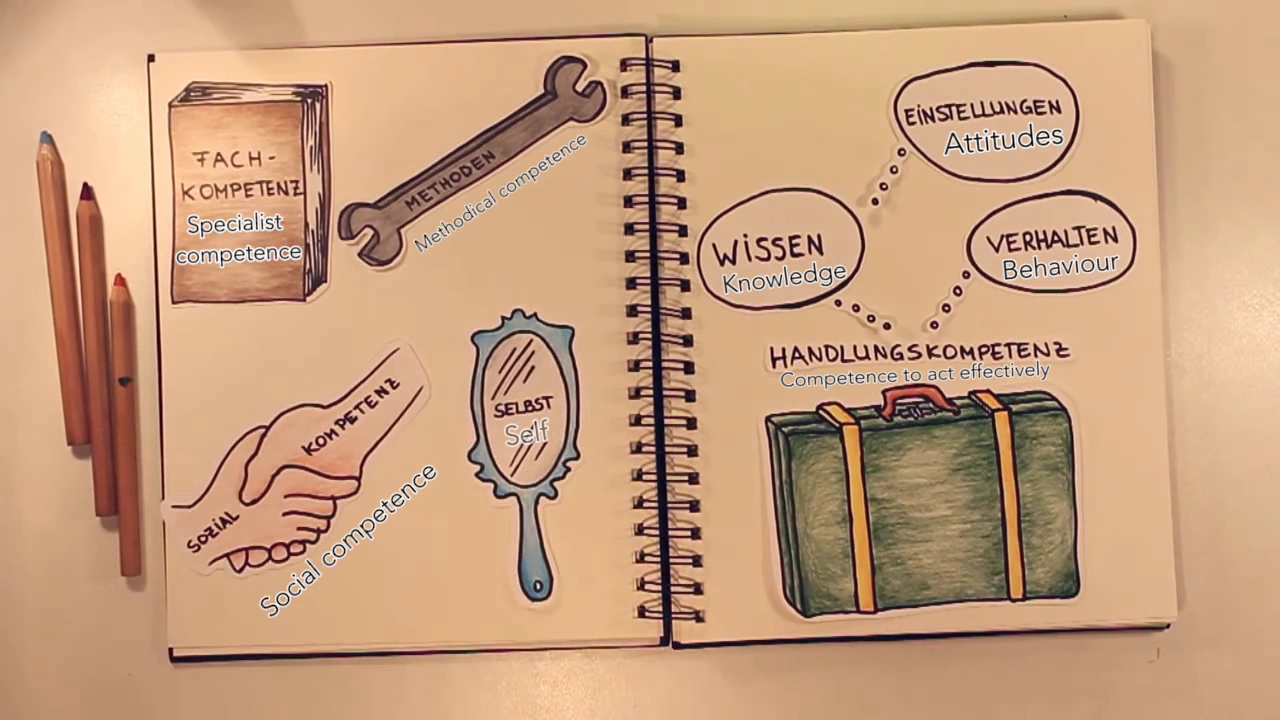 FACH-
KOMPETENZ
Specialist
competence
METHODEN
Methodical competence
SOZIAL
KOMPETENZ
Social competence
SELBST
Self
EiNSTELLUNGEN
Attitudes
WiSSEN
Knowledge
VERHALTEN
Behaviour
HANDLUNGSKOMPETENZ
Competence to act effectively